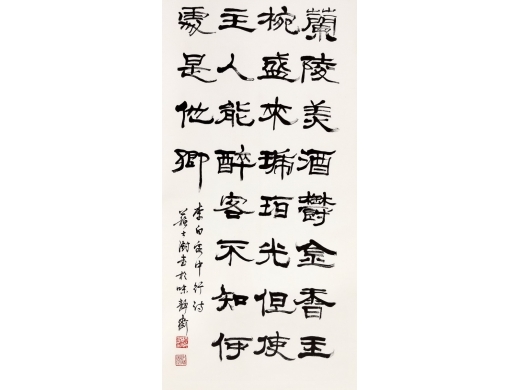 蘭陵美酒鬱金香玉
椀盛來琥珀光但使
主人能醉客不知何
處是他鄉
李白客中行詩
蘇士澍書於味靜齋